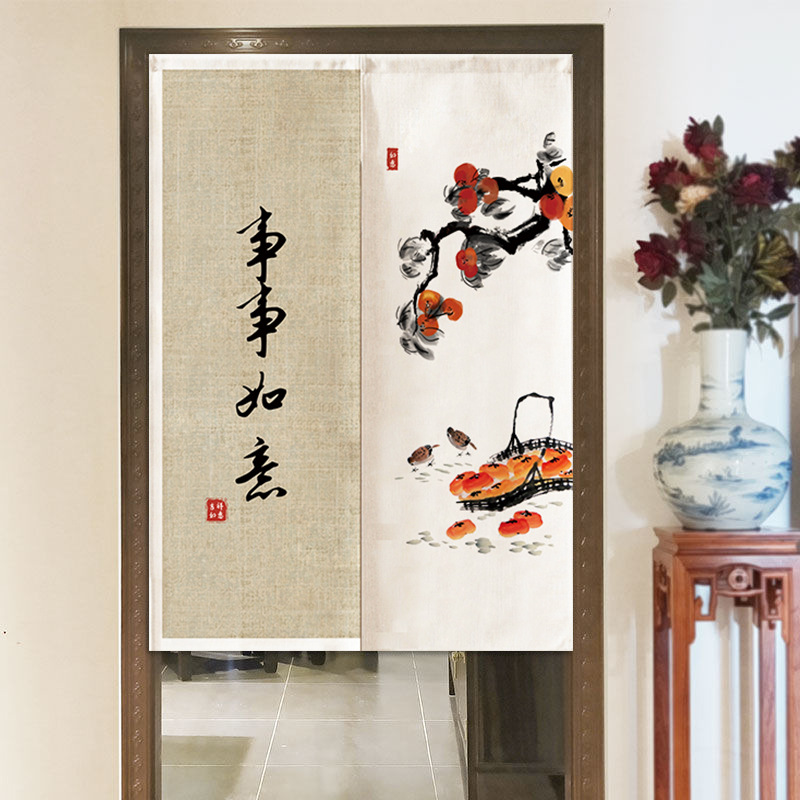 事事如意